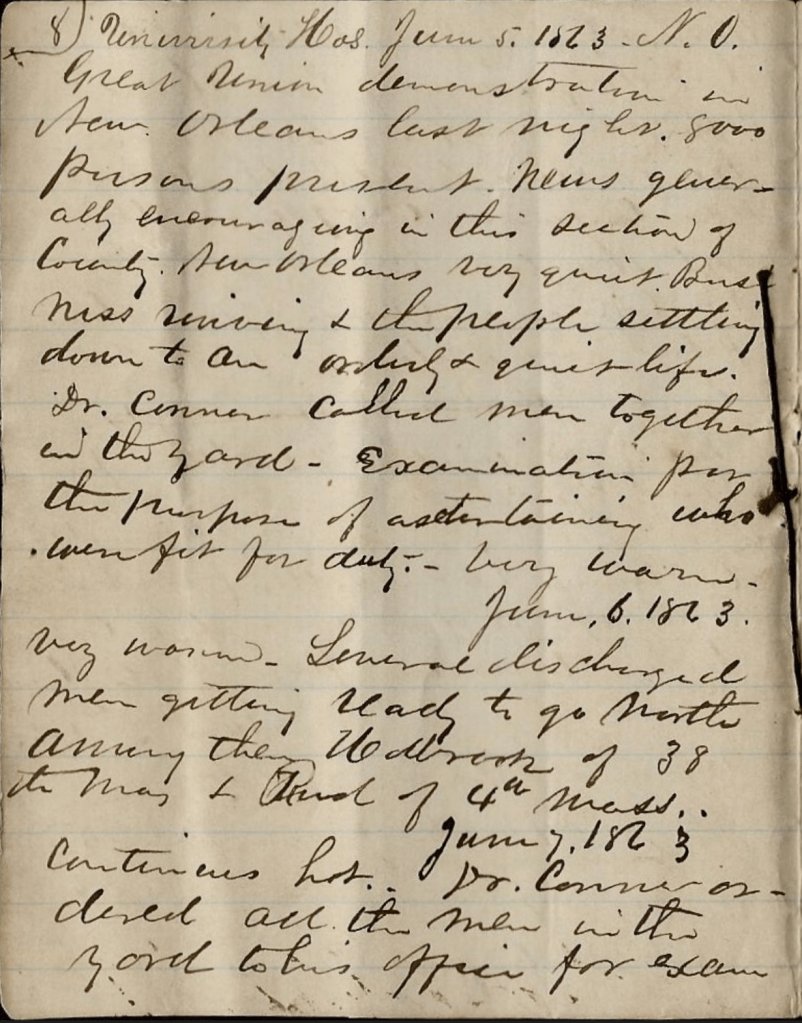 8) University Hos. June 5. 1863 - N. O.
Great Union demonstration in
New Orleans last night. 8000
persons present. News gener-
ally encouraging in this section of
County. New Orleans very quiet. Busi
ness reviving & the people settling
down to an orderly & quiet life.
Dr. Conner called men together
in the yard - Examination for
the purpose of ascertaining who
were fit for duty. - Very warm -
June, 6. 1863.
Very warm - Several discharged
men getting ready to go North
Among them Holbrook of 38
th Mass & of 4th Mass..
June 7, 1863
Continues hot.. Dr. Conner or-
dered all the men in the
yard to his office for exam